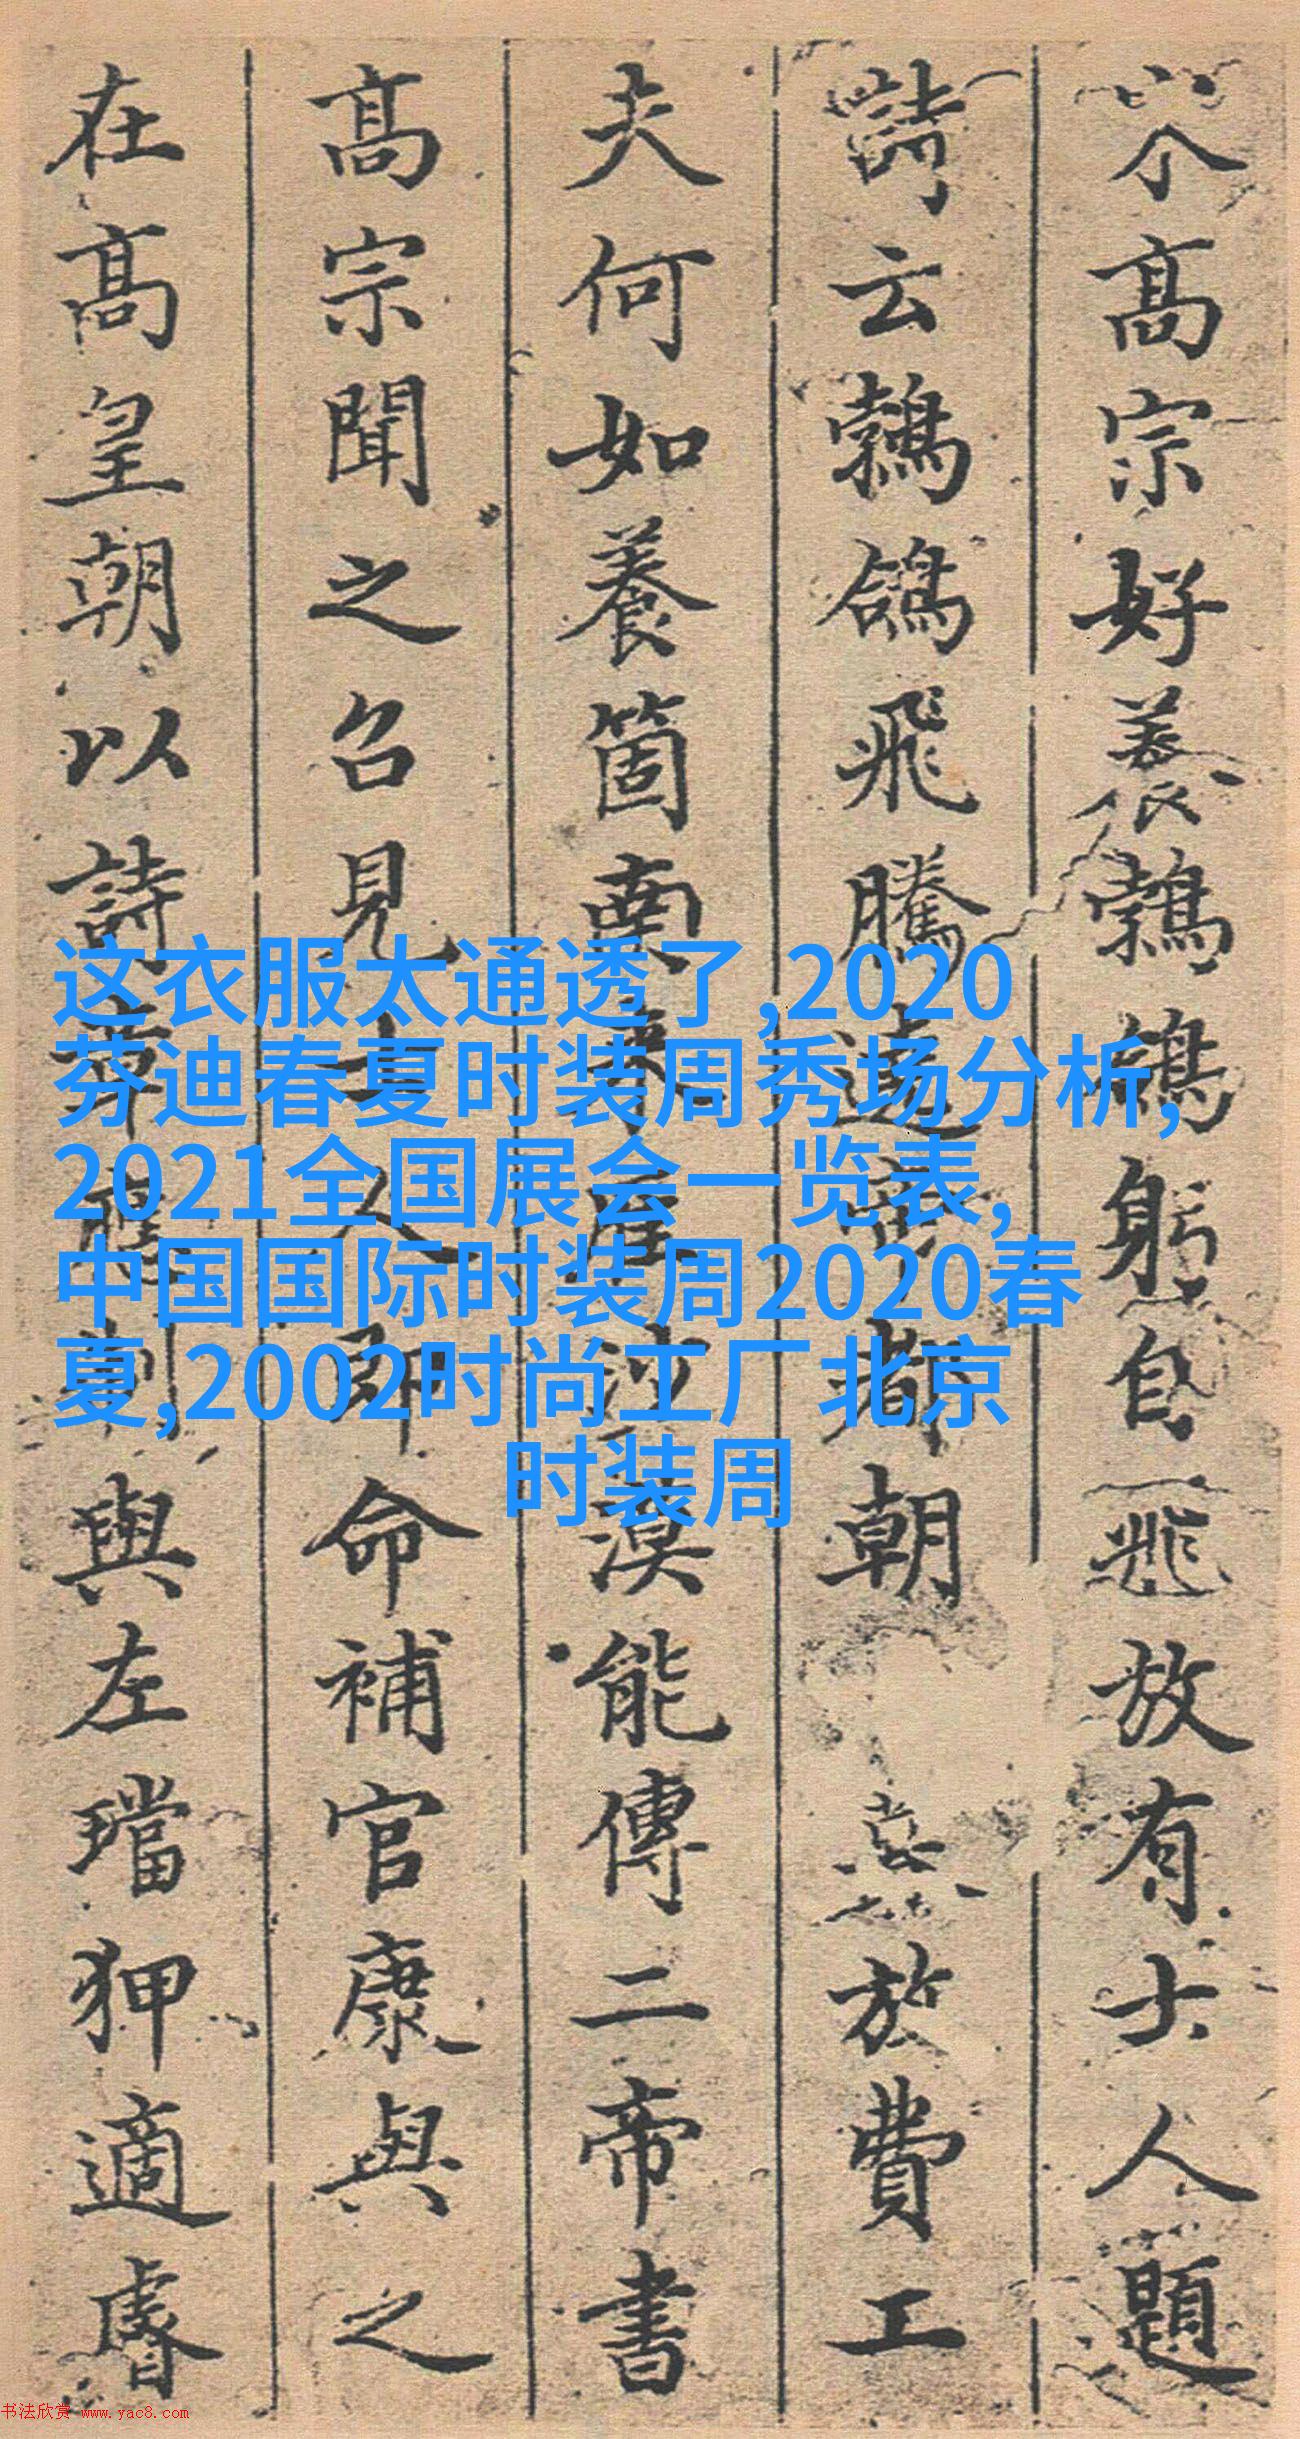 高宗好養鵓鴿躬自飛放有士人題
詩云鵓鴿飛騰遶帝都朝放費工
夫何如養箇南來鴈沙漠能傳二帝書
高宗聞之召見士人即命補官康與之
在高皇朝以詩章應制與左璫狎適睿
这衣服太通透了,2020
芬迪春夏时装周秀场分析,
2021全国展会一览表,
中国国际时装周2020春
夏,2002时尚工厂北京
时装周
书法欣赏 www.yac8.com